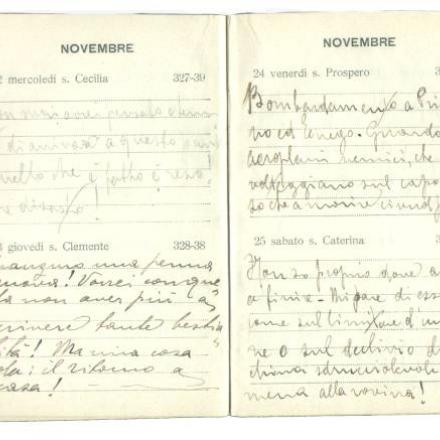 NOVEMBRE
2 mercoledì s. Cecilia 327-39
non mai avrei pensato
di arrivare a questo
quello che è fatto è reso!
disastro!
giovedì s. Clemente 328-38
una penna
nuova! Vorrei
non aver più a
scrivere tante besti
lità! Ma una cosa
sola: il ritorno a
casa!
NOVEMBRE
24 venerdì s. Prospero 3
Bombardamento a Pri
no ed Enego. Guardo
aeroplani nemici, che
volteggiano sul capo
25 sabato s. Caterina
Non so proprio dove a
a finire - Mi pare di ess
ome sul limitare d'un
ne o sul declivio d
china sdrucciolevole
mena alla rovina!